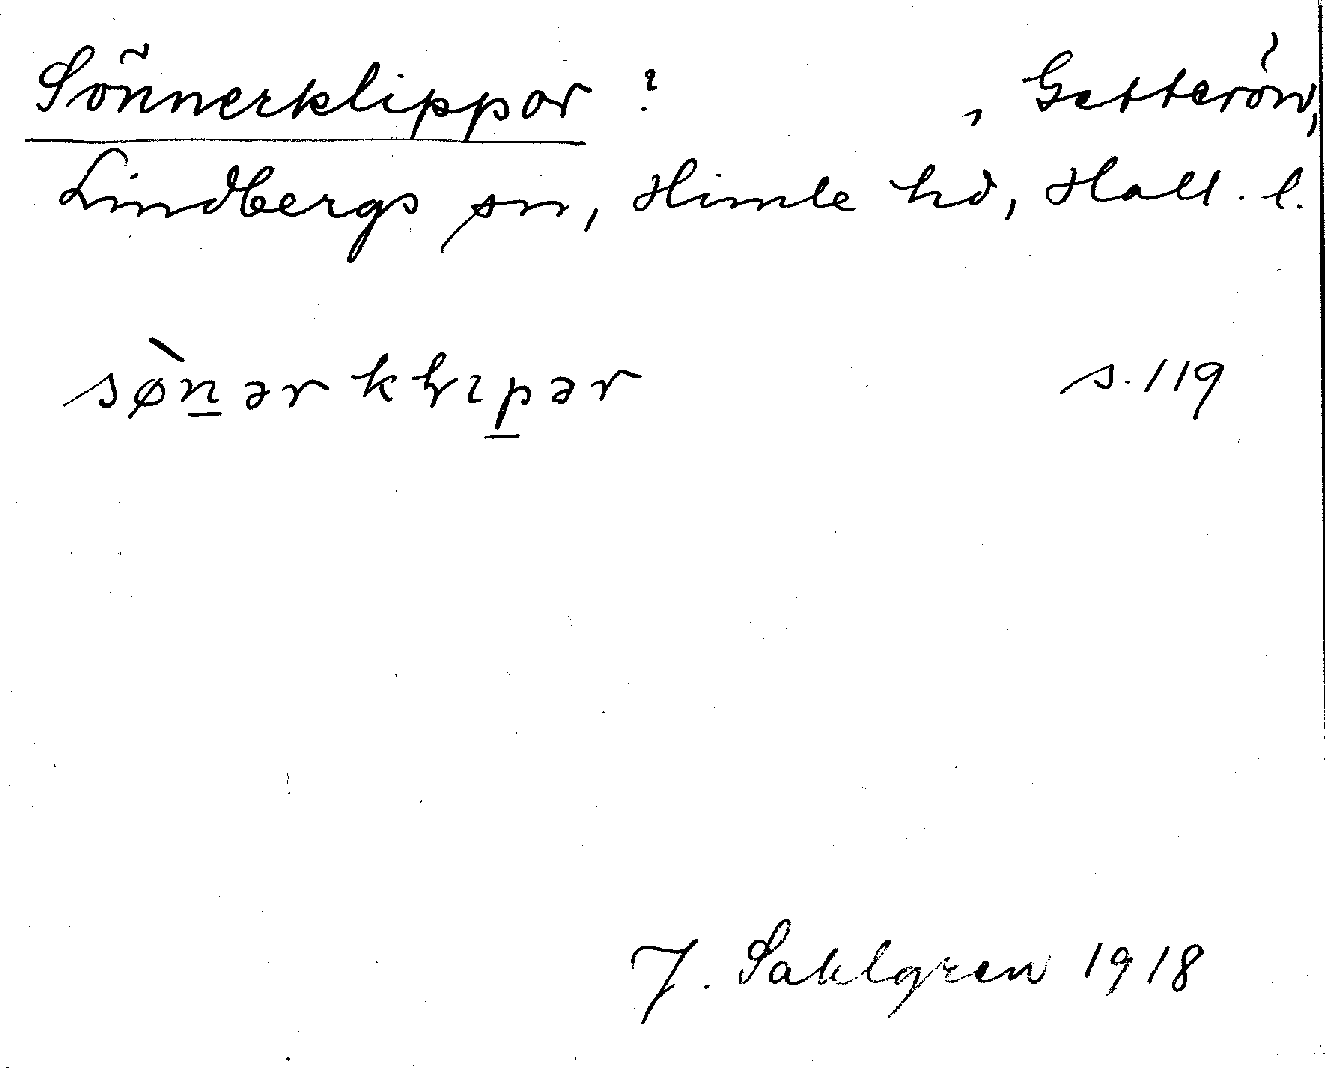 Sönnerklippor ? , Getterön,
Lindbergs sn, Himle hd, Hall. l.
sø̀n̲ər klıp̲ər s. 119
J. Sahlgren 1918